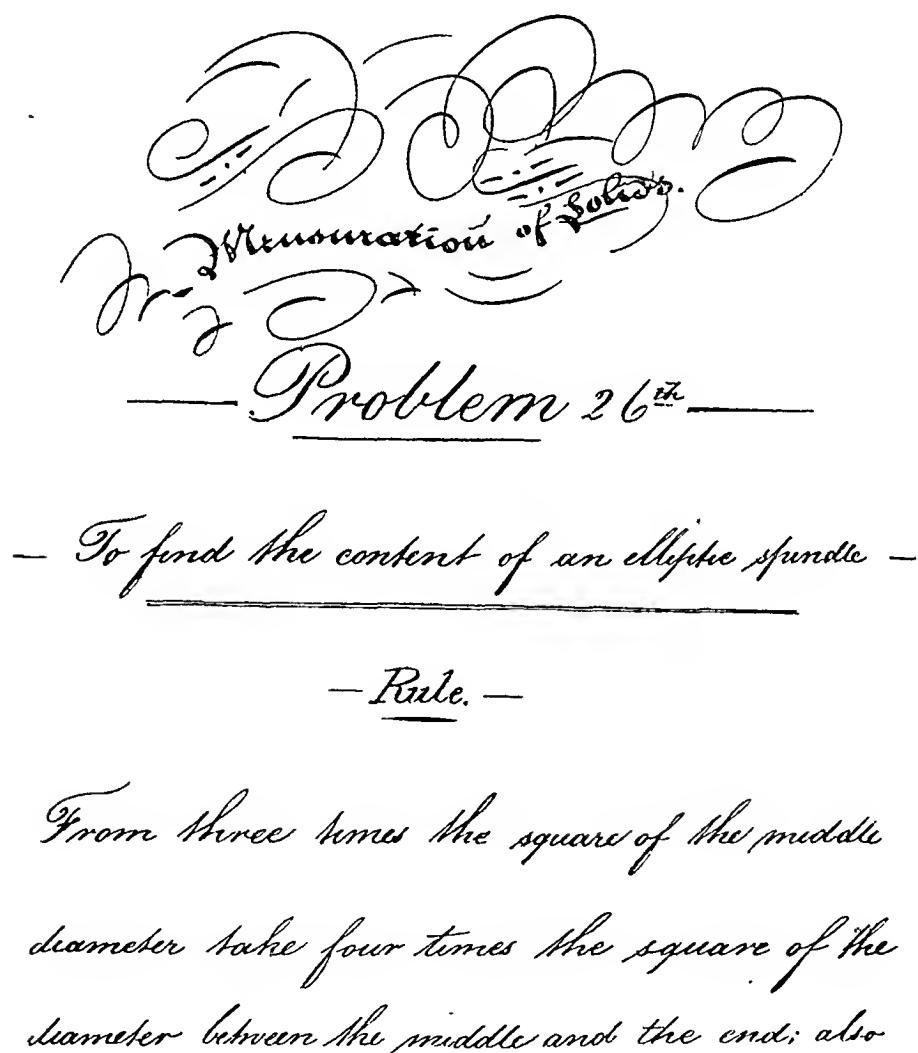 Mensuration of Solids.
Problem 26th
— To find the content of an elliptic spindle —
— Rule. —
From three times the square of the middle
diameter take four times the square of the
diameter between the middle and the end; also